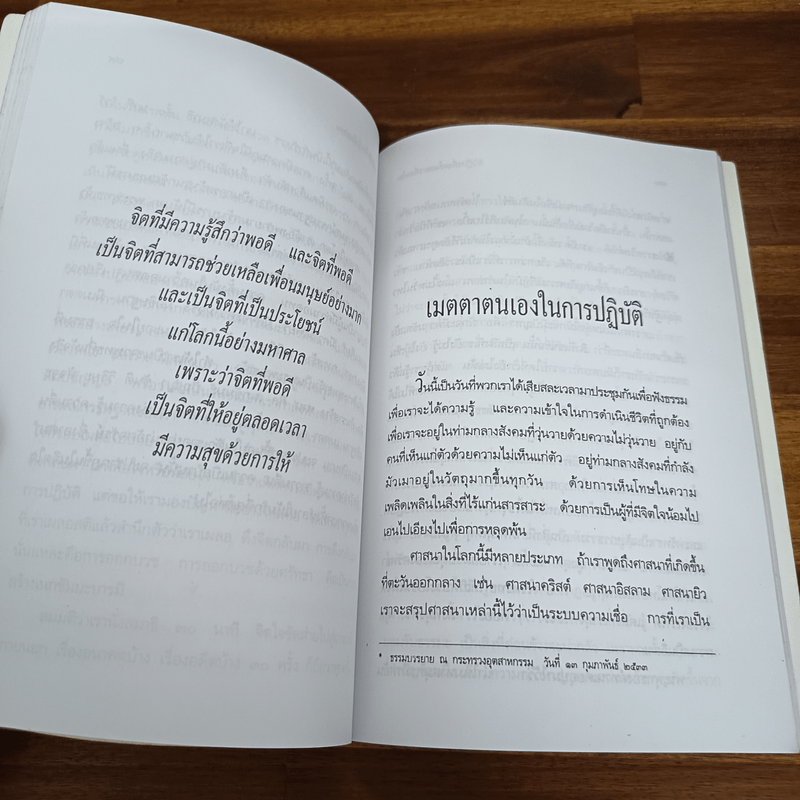 จิตที่มีความรู้สึกว่าพอดี และจิตที่พอดี
เป็นจิตที่สามารถช่วยเหลือเพื่อนมนุษย์อย่างมาก
และเป็นจิตที่เป็นประโยชน์
แก่โลกนี้อย่างมหาศาล
เพราะว่าจิตที่พอดี
เป็นจิตที่ให้อยู่ตลอดเวลา
มีความสุขด้วยการให้
เมตตาตนเองในการปฏิบัติ
วันนี้เป็นวันที่พวกเราได้เสียสละเวลามาประชุมกันเพื่อฟังธรรม
เพื่อเราจะได้ความรู้ และความเข้าใจในการดำเนินชีวิตที่ถูกต้อง
เพื่อเราจะอยู่ในท่ามกลางสังคมที่วุ่นวายด้วยความไม่วุ่นวาย อยู่กับ
คนที่เห็นแก่ตัวด้วยความไม่เห็นแก่ตัว อยู่ท่ามกลางสังคมที่กำลัง
มัวเมาอยู่ในวัตถุมากขึ้นทุกวัน ด้วยการเห็นโทษในความ
เพลิดเพลินในสิ่งที่ไร้แก่นสารสาระ ด้วยการเป็นผู้ที่มีจิตใจน้อมไป
เอนไปเอียงไปเพื่อการหลุดพ้น
ศาสนาในโลกนี้มีหลายประเภท ถ้าเราพูดถึงศาสนาที่เกิดขึ้น
ที่ตะวันออกกลาง เช่น ศาสนาคริสต์ ศาสนาอิสลาม ศาสนายิว
เราจะสรุปศาสนาเหล่านี้ไว้ว่าเป็นระบบความเชื่อ การที่เราเป็น
* ธรรมบรรยาย ณ กระทรวงอุตสาหกรรม วันที่ ๑๓ กุมภาพันธ์ ๒๕๓๓